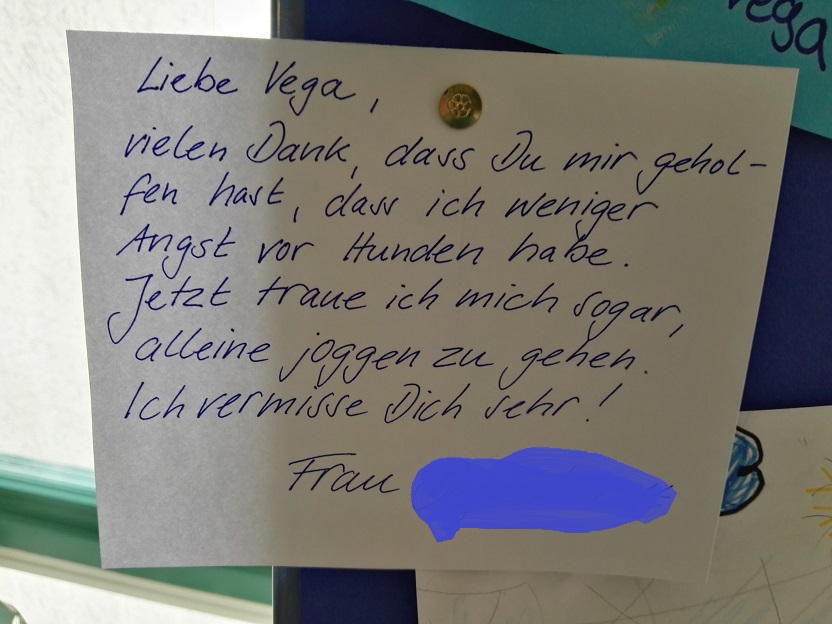 vega
Liebe Vega,
vielen Dank, dass Du mir gehol-
fen hast, dass ich weniger
Angst vor Hunden habe.
Jetzt traue ich mich sogar,
alleine joggen zu gehen.
Ich vermisse Dich sehr!
Frau